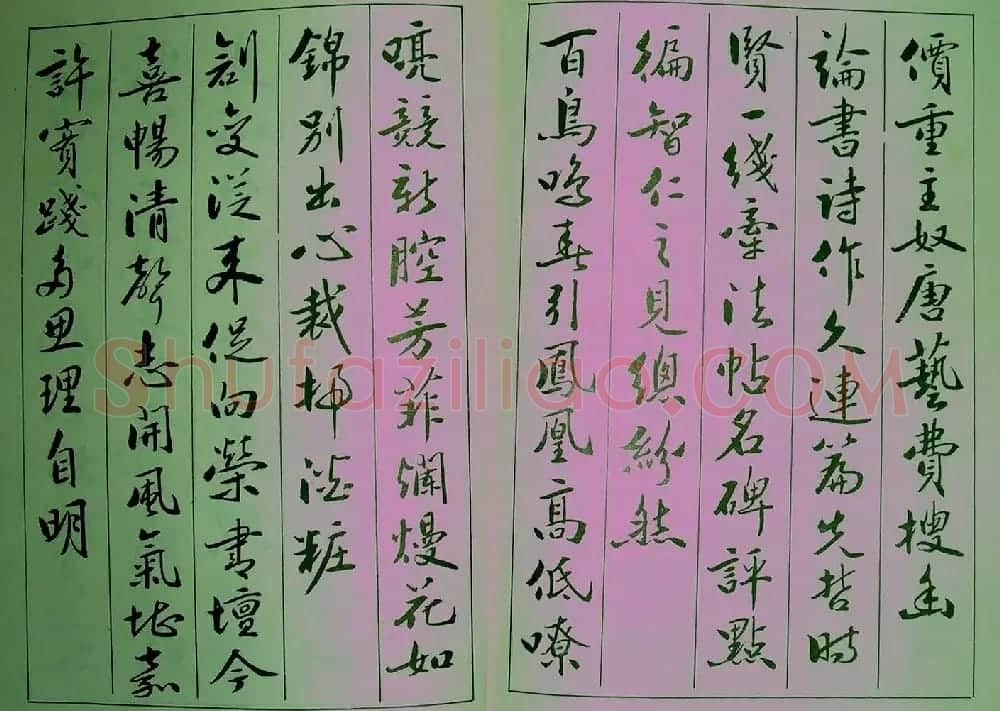 價重主奴唐藝費搜幽
論書詩作久連篇先哲時
賢一綫牽法帖名碑評點
徧智仁之見總紛然
百鳥鳴春引鳳凰高低嘹
喨競新腔芳菲爛熳花如
錦別出心裁掃粧
創變從來促向榮書壇今
喜暢清聲志開風氣堪嘉
許實踐多思理自明
Shufaziliao.COM